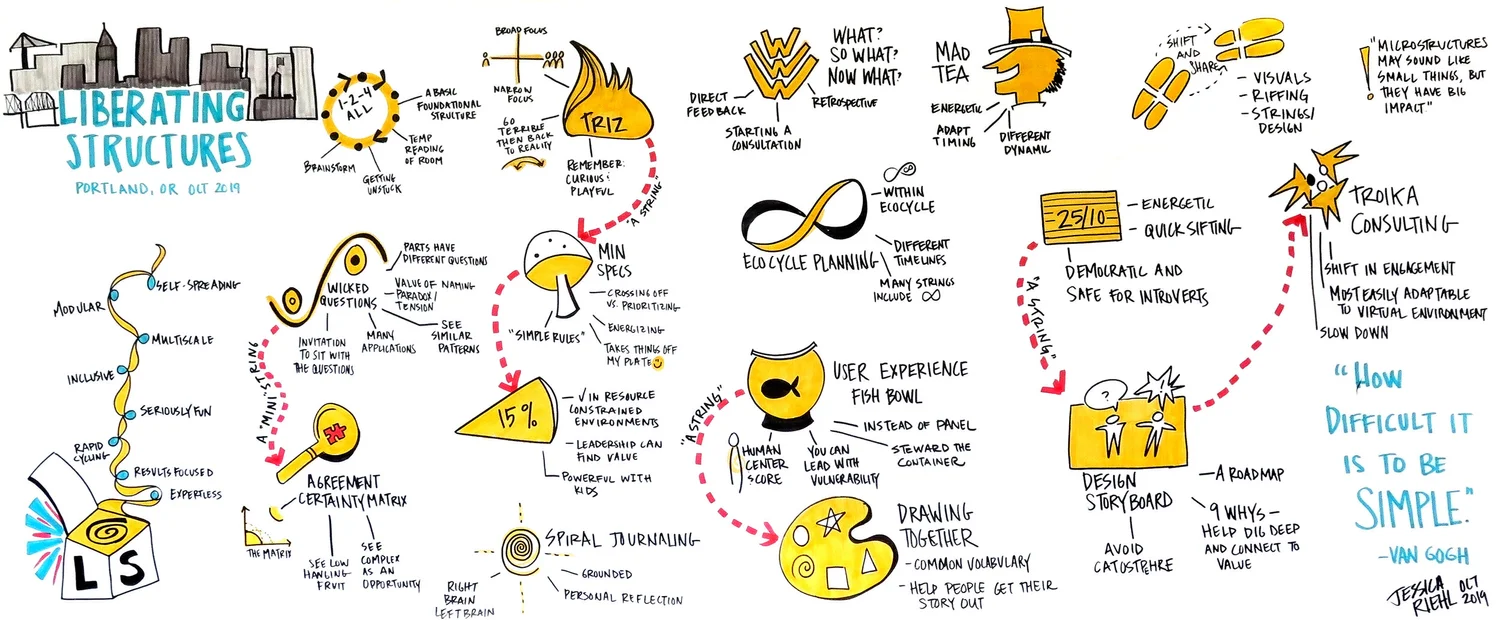 LIBERATING
STRUCTURES
PORTLAND, OR OCT 2019
1-2-4
ALL
A BASIC
FOUNDATIONAL
STRUCTURE
TEMP
READING
OF ROOM
GETTING
UNSTUCK
BRAINSTORM
BROAD FOCUS
NARROW
FOCUS
GO
TERRIBLE
THEN BACK
TO REALITY
TRIZ
REMEMBER:
CURIOUS &
PLAYFUL
"A STRING"
WHAT?
SO WHAT?
NOW WHAT?
W
W
W
DIRECT
FEEDBACK
STARTING A
CONSULTATION
RETROSPECTIVE
MAD
TEA
ENERGETIC
ADAPT
TIMING
DIFFERENT
DYNAMIC
SHIFT
AND
SHARE
- VISUALS
- RIFFING
- STRINGS/
DESIGN
! "MICROSTRUCTURES
MAY SOUND LIKE
SMALL THINGS, BUT
THEY HAVE BIG
IMPACT"
SELF-SPREADING
MODULAR
MULTISCALE
INCLUSIVE
SERIOUSLY FUN
RAPID
CYCLING
RESULTS FOCUSED
EXPERTLESS
LS
WICKED
QUESTIONS
PARTS HAVE
DIFFERENT QUESTIONS
VALUE OF NAMING
PARADOX/
TENSION
SEE
SIMILAR
PATTERNS
MANY
APPLICATIONS
INVITATION
TO SIT WITH
THE QUESTIONS
A "MINI" STRING
AGREEMENT
CERTAINTY MATRIX
THE MATRIX
SEE LOW
HANGING
FRUIT
SEE
COMPLEX
AS AN
OPPORTUNITY
MIN
SPECS
"SIMPLE RULES"
CROSSING OFF
VS. PRIORITIZING
ENERGIZING
TAKES THINGS OFF
MY PLATE
15%
- √ IN RESOURCE
CONSTRAINED
ENVIRONMENTS
- LEADERSHIP CAN
FIND VALUE
POWERFUL WITH
KIDS
SPIRAL JOURNALING
GROUNDED
PERSONAL REFLECTION
RIGHT
BRAIN
LEFT BRAIN
ECOCYCLE PLANNING
∞
WITHIN
ECOCYCLE
DIFFERENT
TIMELINES
MANY STRINGS
INCLUDE ∞
USER EXPERIENCE
FISH BOWL
INSTEAD OF PANEL
STEWARD THE
CONTAINER
YOU CAN
LEAD WITH
VULNERABILITY
HUMAN
CENTER
SCORE
"A STRING"
DRAWING
TOGETHER
- COMMON VOCABULARY
- HELP PEOPLE GET THEIR
STORY OUT
25/10
- ENERGETIC
- QUICK SIFTING
DEMOCRATIC AND
SAFE FOR INTROVERTS
"A STRING"
DESIGN
STORYBOARD
?
!
- A ROADMAP
9 WHYS -
HELP DIG DEEP
AND CONNECT TO
VALUE
AVOID
CATOSTPHRE
TROIKA
CONSULTING
SHIFT IN ENGAGEMENT
MOST EASILY ADAPTABLE
TO VIRTUAL ENVIRONMENT
SLOW DOWN
"HOW
DIFFICULT IT
IS TO BE
SIMPLE."
- VAN GOGH
JESSICA
RIEHL OCT
2019